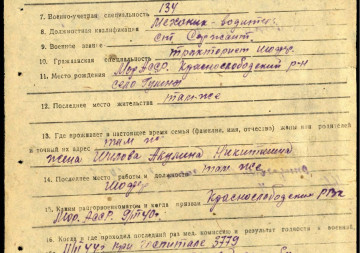 7. Военно-учетная специальность 134
8. Должностная квалификация механик-водитель
9. Военное звание ст сержант
10. Гражданская специальность тракторист шофер
11. Место рождения Мор.АССР, Краснослободский р-н
село Гумны
12. Последнее место жительства там-же
13. Где проживает в настоящее время семья (фамилия, имя, отчество) жены или родителей
и точный их адрес там же
жена Шилова Акулина Никитишна
14. Последнее место работы и должность там же
шофер
15. Каким райгорвоенкоматом и когда призван Краснослободским РВК
Мор. АССР
16. Когда и где проходил последний раз мед. комиссию и результат годности к военной
при госпитале 3779